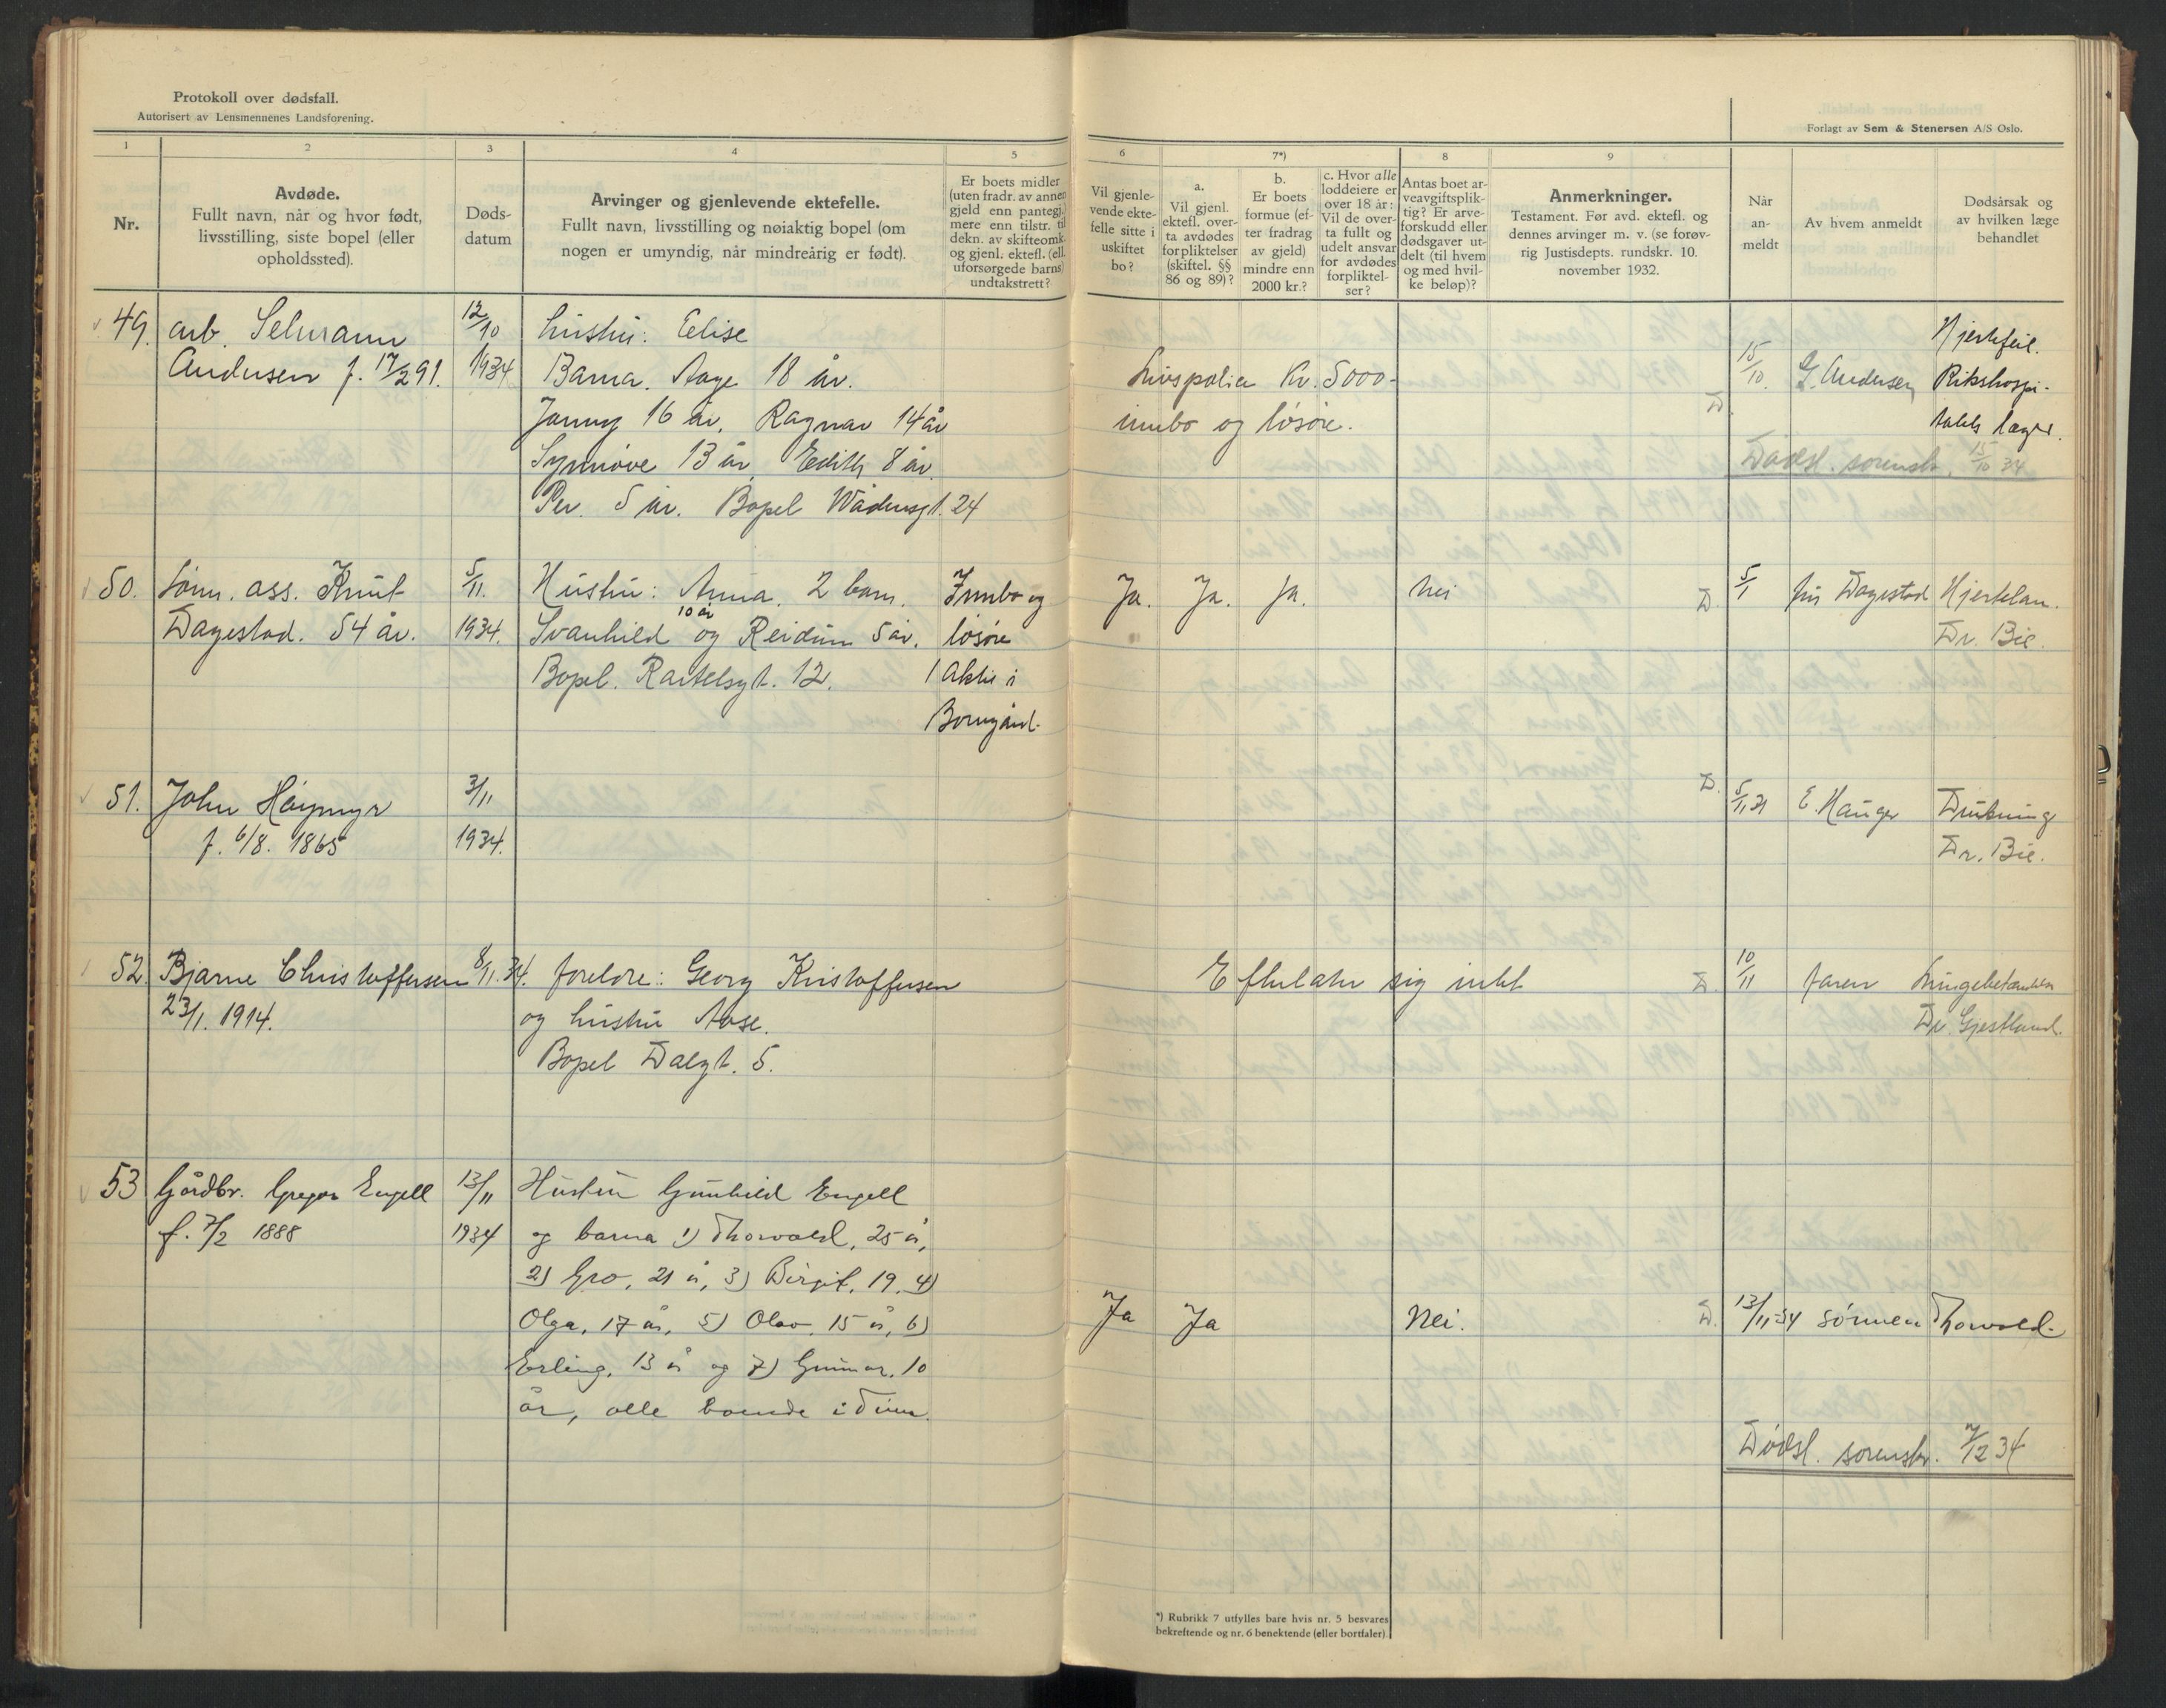 Protokoll over dødsfall.
Autorisert av Lensmennenes Landsforening.
Forlagt av Sem & Stenersen A/S Oslo.
1
2
3
4
5
6
7*)
8
9
Nr.
Avdøde.
Fullt navn, når og hvor født,
livsstilling, siste bopel (eller
opholdssted).
Døds-
datum
Arvinger og gjenlevende ektefelle.
Fullt navn, livsstilling og nøiaktig bopel (om
nogen er umyndig, når mindreårig er født).
Er boets midler
(uten fradr. av annen
gjeld enn pantegj.)
mere enn tilstr. til
dekn. av skifteomk.
og gjenl. ektefl. (ell.
uforsørgede barns)
undtakstrett?
Vil gjenle-
vende ekte-
felle sitte i
uskiftet
bo?
a.
Vil gjenl.
ektefl. over-
ta avdødes
forpliktelser
(skiftel. §§
86 og 89)?
b.
Er boets
formue (ef-
ter fradrag
av gjeld)
mindre enn
2000 kr.?
c. Hvor alle
loddeiere er
over 18 år:
Vil de over-
ta fullt og
udelt ansvar
for avdødes
forpliktel-
ser?
Antas boet ar-
veavgiftsplik-
tig? Er arve-
forskudd eller
dødsgaver ut-
delt (til hvem
og med hvil-
ke beløp)?
Anmerkninger.
Testament. Før avd. ektefl. og
dennes arvinger m. v. (se forøv-
rig Justisdepts. rundskr. 10.
november 1932.
Når
an-
meldt
Av hvem anmeldt
Dødsårsak og
av hvilken læge
behandlet
49. arb. Selmann
Andersen f. 17/2 91.
12/10
1934
hustru: Elise
Barna. Aage 18 år.
Jenny 16 år. Ragnar 14 år
Synnøve 13 år Edith 8 år.
Per. 5 år. Bopel Wadensgt. 24
Livspolise Kr. 5000-
innbo og løsøre.
D.
15/10. G. Andersen
Hjertefeil.
Rikshospi-
talets læger.
Dødsl. sorenskr. 15/10 34
50. form. ass. Knut
Dagestad. 54 år.
5/11.
1934.
Hustru: Anna. 2 barn.
Svanhild 10 år og Reidun 5 år.
Bopel. Raftelsgt. 12.
Innbo og
løsøre
1 aktie i
Bornegård.
Ja. Ja. Ja. Nei
D.
5/1 fru Dagestad
Hjertelam.
Dr. Bie.
51. John Høymyr
f. 6/8. 1865
3/11
1934.
D.
5/11 34 E. Hauger
Drukning
Dr. Bie.
52. Bjarne Christoffersen
23/1. 1914.
8/11. 34.
foreldre: Georg Kristoffersen
og hustru Aase.
Bopel Dalgt. 5.
Efterlater sig intet
D.
10/11 faren
Lungebetændelse
Dr. Gjestland.
53 Gårdbr. Gregar Engell
f. 7/2 1888
13/11
1934
Hustru Gunhild Engell
og barna 1) Thorvald, 25 år,
2) Gro, 21 år, 3) Birgit, 19. 4)
Olga, 17 år, 5) Olav, 15 år, 6)
Erling, 13 år og 7) Gunnar, 10
år, alle boende i
Ja Ja Nei.
D.
13/11-34 sønnen Thorvald.
Dødsl. sorenskr. 7/12 34
*) Rubrikk 7 utfylles bare hvis nr. 5 besvares
bekreftende og nr. 6 benektende (eller bortfaler).